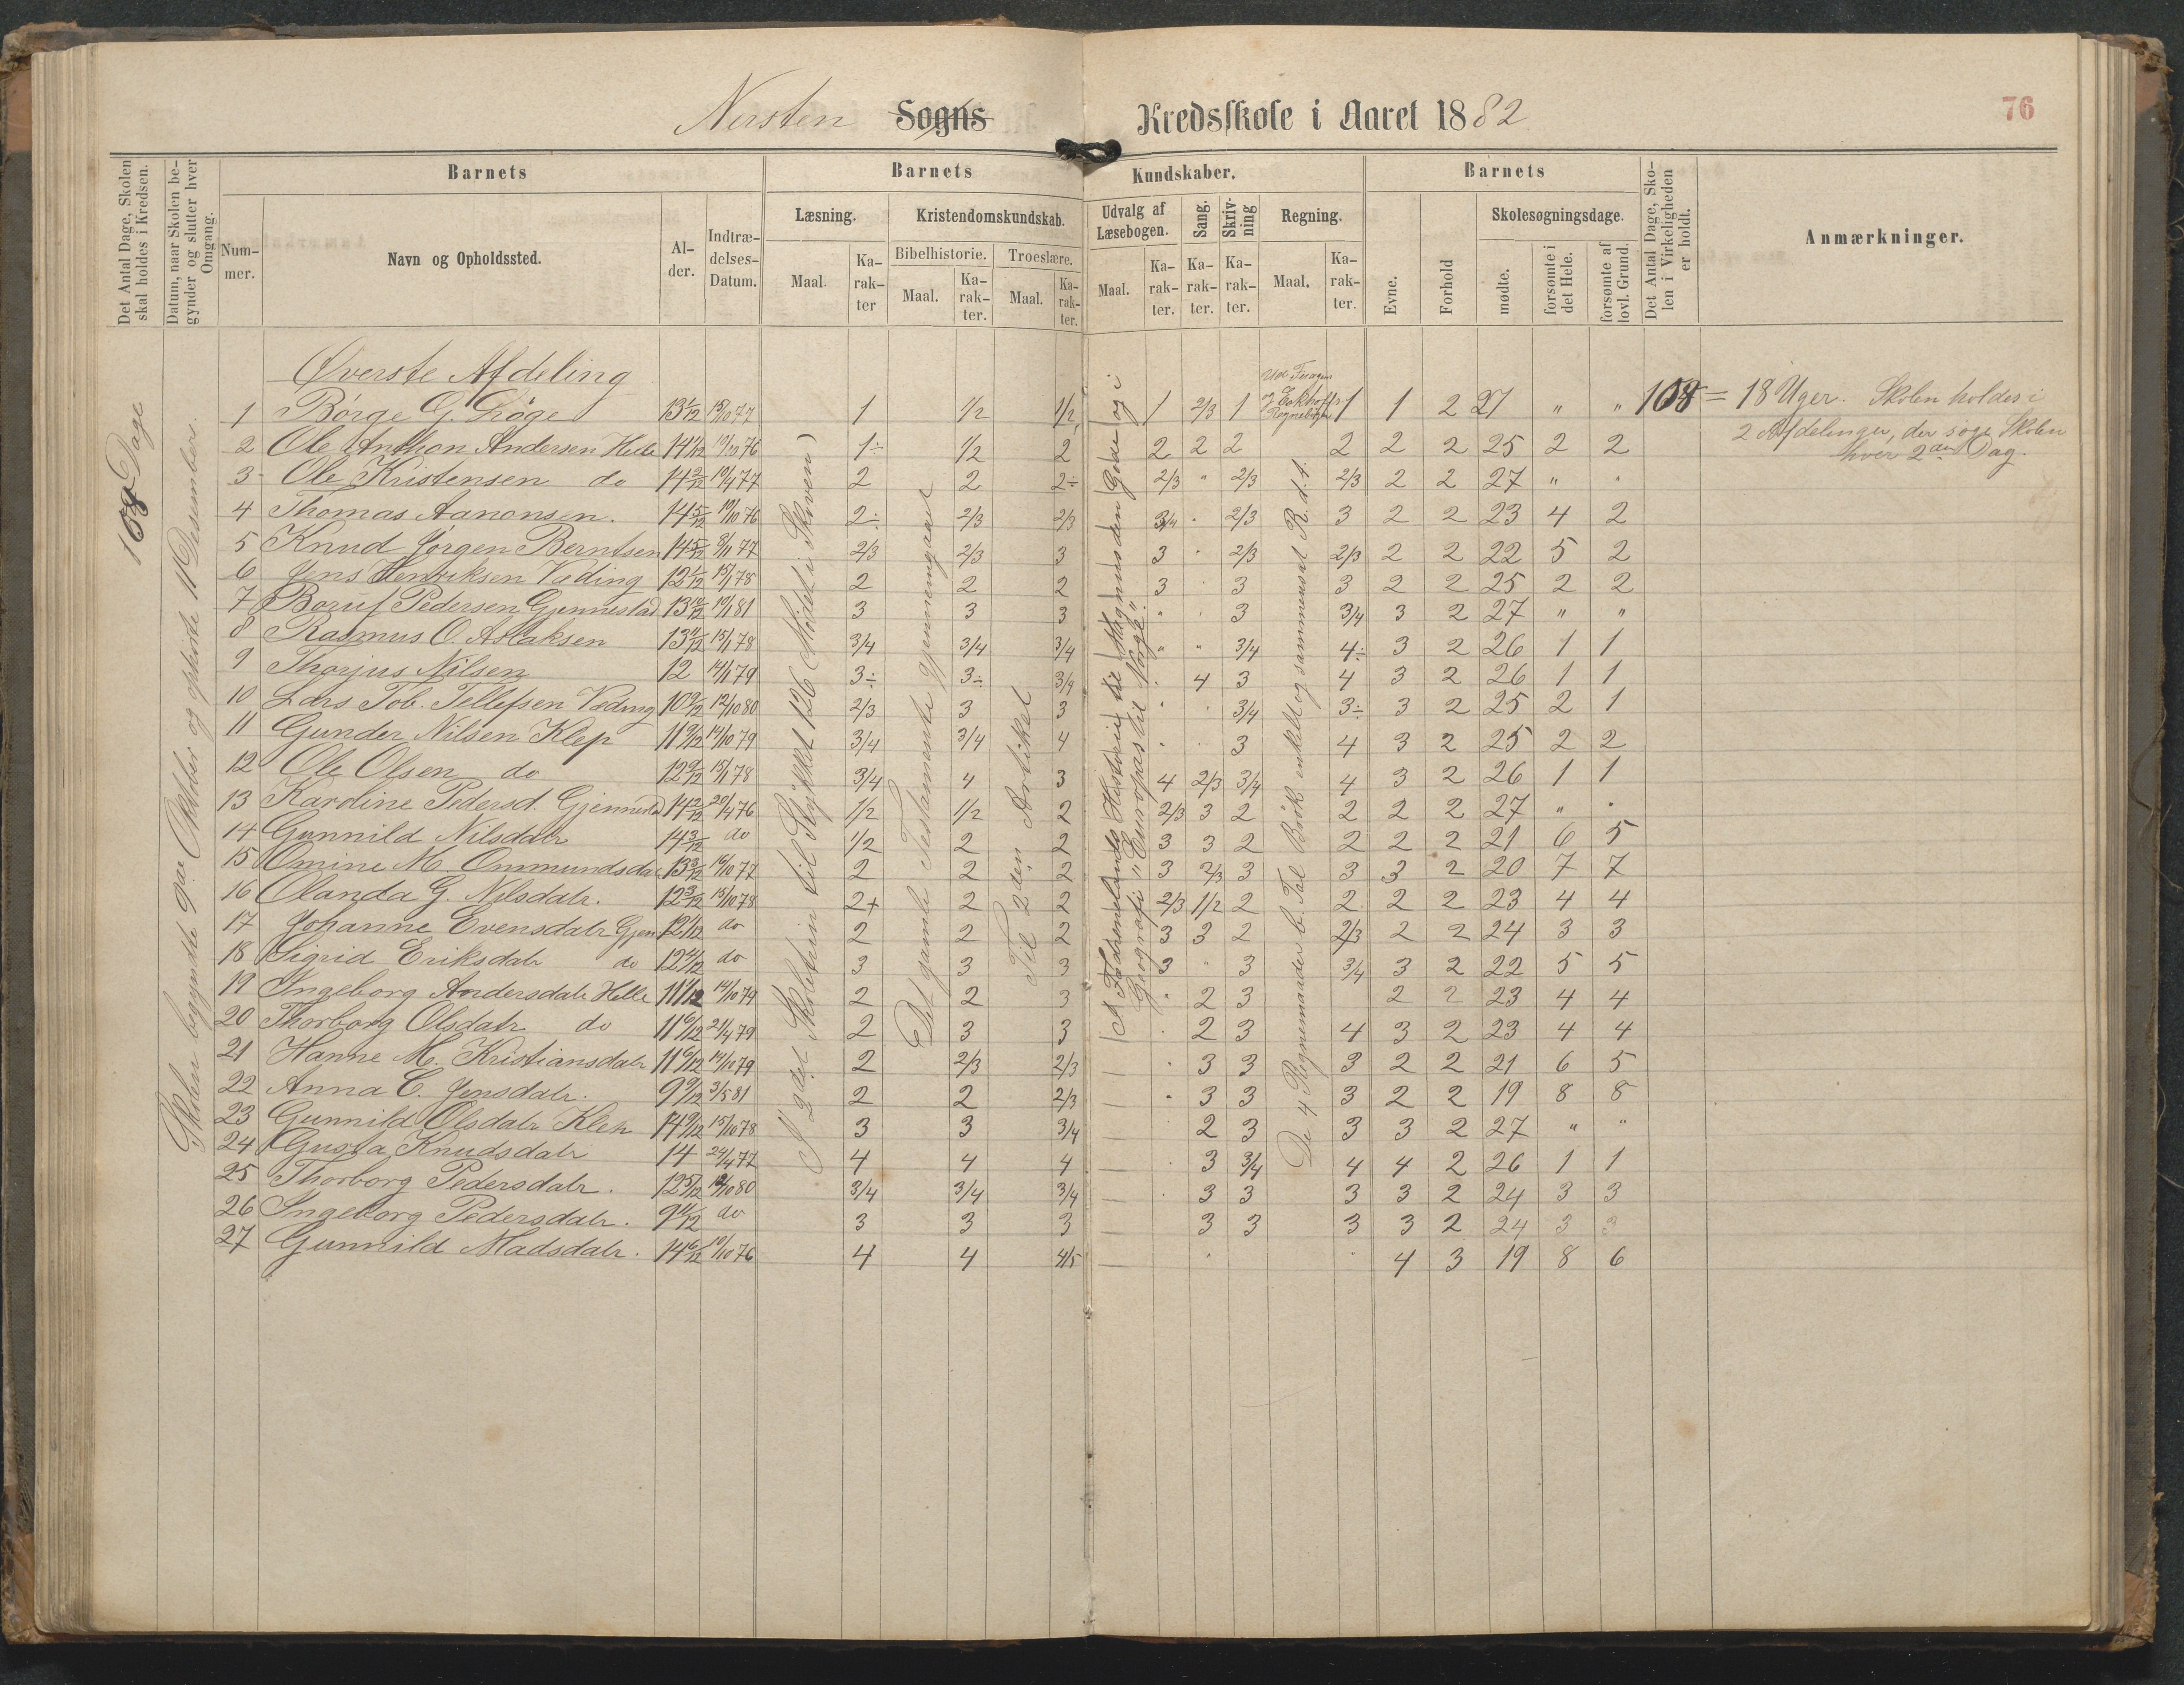 Nersten Sogns Kredsskole i Aaret 1882
76
Det Antal Dage, Skolen skal holdes i Kredsen.
Datum, naar Skolen begynder og slutter hver Omgang.
Barnets
Nummer.
Navn og Opholdssted.
Alder.
Indtrædelses-Datum.
Barnets Kundskaber.
Læsning.
Maal.
Karakter
Kristendomskundskab.
Bibelhistorie.
Maal.
Karakter.
Troeslære.
Maal.
Karakter.
Udvalg af Læsebogen.
Maal.
Karakter.
Sang.
Karakter.
Skrivning
Karakter.
Regning.
Maal.
Karakter.
Barnets
Evne.
Forhold
Skolesøgningsdage.
mødte.
forsømte i det Hele.
forsømte af lovl. Grund.
Det Antal Dage, Skolen i Virkeligheden er holdt.
Anmærkninger.
108 Dage
Skolen begyndte 9de Oktober og ophørte 11 Desember.
I 2det Skoletrin til Stykket 126 (Mødet i Skoven)
Det gamle Testamente gjennemgaaet
Til 2den Artikkel
Af Fædrenelandets Historie til Magnus den Gode og i
Geografi "Europas til Norge".
De 4 Regnemaader b. Tal Brök enkelt og sammensat R. d. t.
108 = 18 Uger. Skolen holdes i
2 Afdelinger, der søge Skolen
hver 2den Dag.
Øverste Afdeling
1 Børge G. 13 1/12 15/10 77 1 1/2 1/2 1 2/3 1 1 1 2 27 " "
2 Ole Anthon Andersen Helle 14 1/12 19/10 76 1÷ 1/2 2 2 2 2 2 2 2 25 2 2
3 Ole Kristensen do 14 2/12 19/4 77 2 2 2÷ 2/3 " 2/3 2/3 2 2 27 " "
4 Thomas Aanonsen. 14 5/12 19/10 76 2÷ 2/3 2/3 3/4 . 2/3 3 2 2 23 4 2
5 Knud Jørgen Berntsen 14 5/12 8/1 77 2/3 2/3 3 3 " 2/3 2/3 2 2 22 5 2
6 Jens Henriksen Væding 12 1/12 15/1 78 2 2 2 3 . 3 3 2 2 25 2 2
7 Pedersen Gjennestad 13 10/12 19/1 81 3 3 3 " . 3 3/4 3 2 27 " "
8 Rasmus O. Aslaksen 13 11/12 15/1 78 3/4 3/4 3/4 " " 3/4 4÷ 3 2 26 1 1
9 Thorjus Nilsen 12 14/1 79 3÷ 3÷ 3/4 . 4 3 4 3 2 26 1 1
10 Lars Tob. Tellefsen Væding 10 9/12 12/10 80 2/3 3 3 " . 3/4 3÷ 3 2 25 2 1
11 Gunder Nilsen Klep 11 9/12 14/10 79 3/4 3/4 4 . . 3 4 3 2 25 2 2
12 Ole Olsen do 12 9/12 15/1 78 3/4 4 3 4 2/3 3/4 4 3 2 26 1 1
13 Karoline Pedersd. Gjennestad 14 2/12 20/4 76 1/2 1/2 2 2/3 3 2 2 2 2 27 " "
14 Gunnild Nilsdatr 14 3/12 do 1/2 2 2 3 3 2 2 2 2 21 6 5
15 Omine M. Ommundsdatr 13 3/12 16/10 77 2 2 2 3 2/3 3 3 3 2 20 7 7
16 Olanda G. Nilsdatr. 12 3/12 15/10 78 2+ 2 2 2/3 1/2 2 2 2 2 23 4 4
17 Johanne Evensdatr Gjen 12 1/12 do 2 2 2 3 3 2 2/3 2 2 24 3 3
18 Sigrid Eriksdatr do 12 4/12 do 3 3 3 3 " 3 3/4 3 2 22 5 5
19 Ingeborg Andersdatr Helle 11 1/12 14/10 79 2 2 3 " 2 3 2 2 23 4 4
20 Thorborg Olsdatr do 11 6/12 21/4 79 2 3 3 . 2 3 4 3 2 23 4 4
21 Hanne M. Kristiansdatr 11 6/12 14/10 79 2 2/3 2/3 . 3 3 3 2 2 21 6 5
22 Anna C. Jensdatr. 9 9/12 3/5 81 2 2 2/3 " 3 3 3 2 2 19 8 8
23 Gunnild Olsdatr Klep 14 9/12 15/10 78 3 3 3/4 2 3 3 3 2 27 " "
24 Gusta Knudsdatr 14 24/4 77 4 4 4 3 3/4 4 4 2 26 1 1
25 Thorborg Pedersdatr. 12 5/12 12/10 80 3/4 3/4 3/4 . 3 3 3 3 2 24 3 3
26 Ingeborg Pedersdatr. 9 11/12 do 3 3 3 3 3 3 3 2 24 3 3
27 Gunnild Madsdatr. 14 6/12 19/10 76 4 4 4/5 4 3 19 8 6